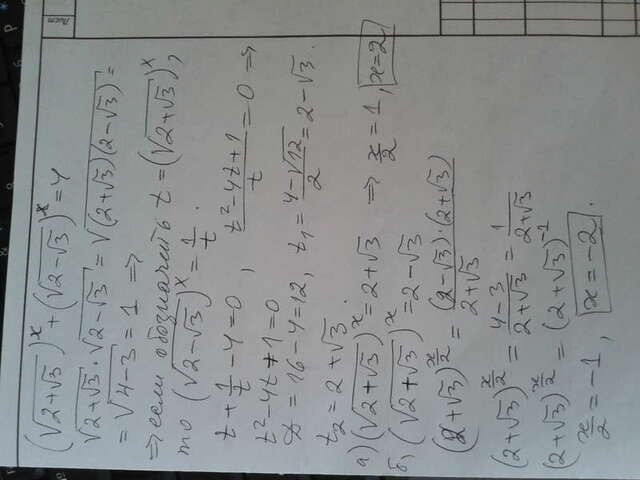 Лист
(√(2+√3))^x + (√(2-√3))^x = 4
√(2+√3) · √(2-√3) = √((2+√3)(2-√3)) =
= √(4-3) = 1 ⇒
⇒ если обозначить t = (√(2+√3))^x,
то (√(2-√3))^x = 1/t.
t + 1/t - 4 = 0, (t²-4t+1)/t = 0 ⇒
t²-4t+1=0
D = 16-4=12, t₁ = (4-√12)/2 = 2-√3.
t₂ = 2+√3.
а) (√(2+√3))^x = 2+√3 ⇒ x/2 = 1, x=2
б) (√(2+√3))^x = 2-√3
(2+√3)^(x/2) = ((2-√3)·(2+√3))/(2+√3)
(2+√3)^(x/2) = (4-3)/(2+√3) = 1/(2+√3)
(2+√3)^(x/2) = (2+√3)^(-1)
x/2 = -1, x=-2.